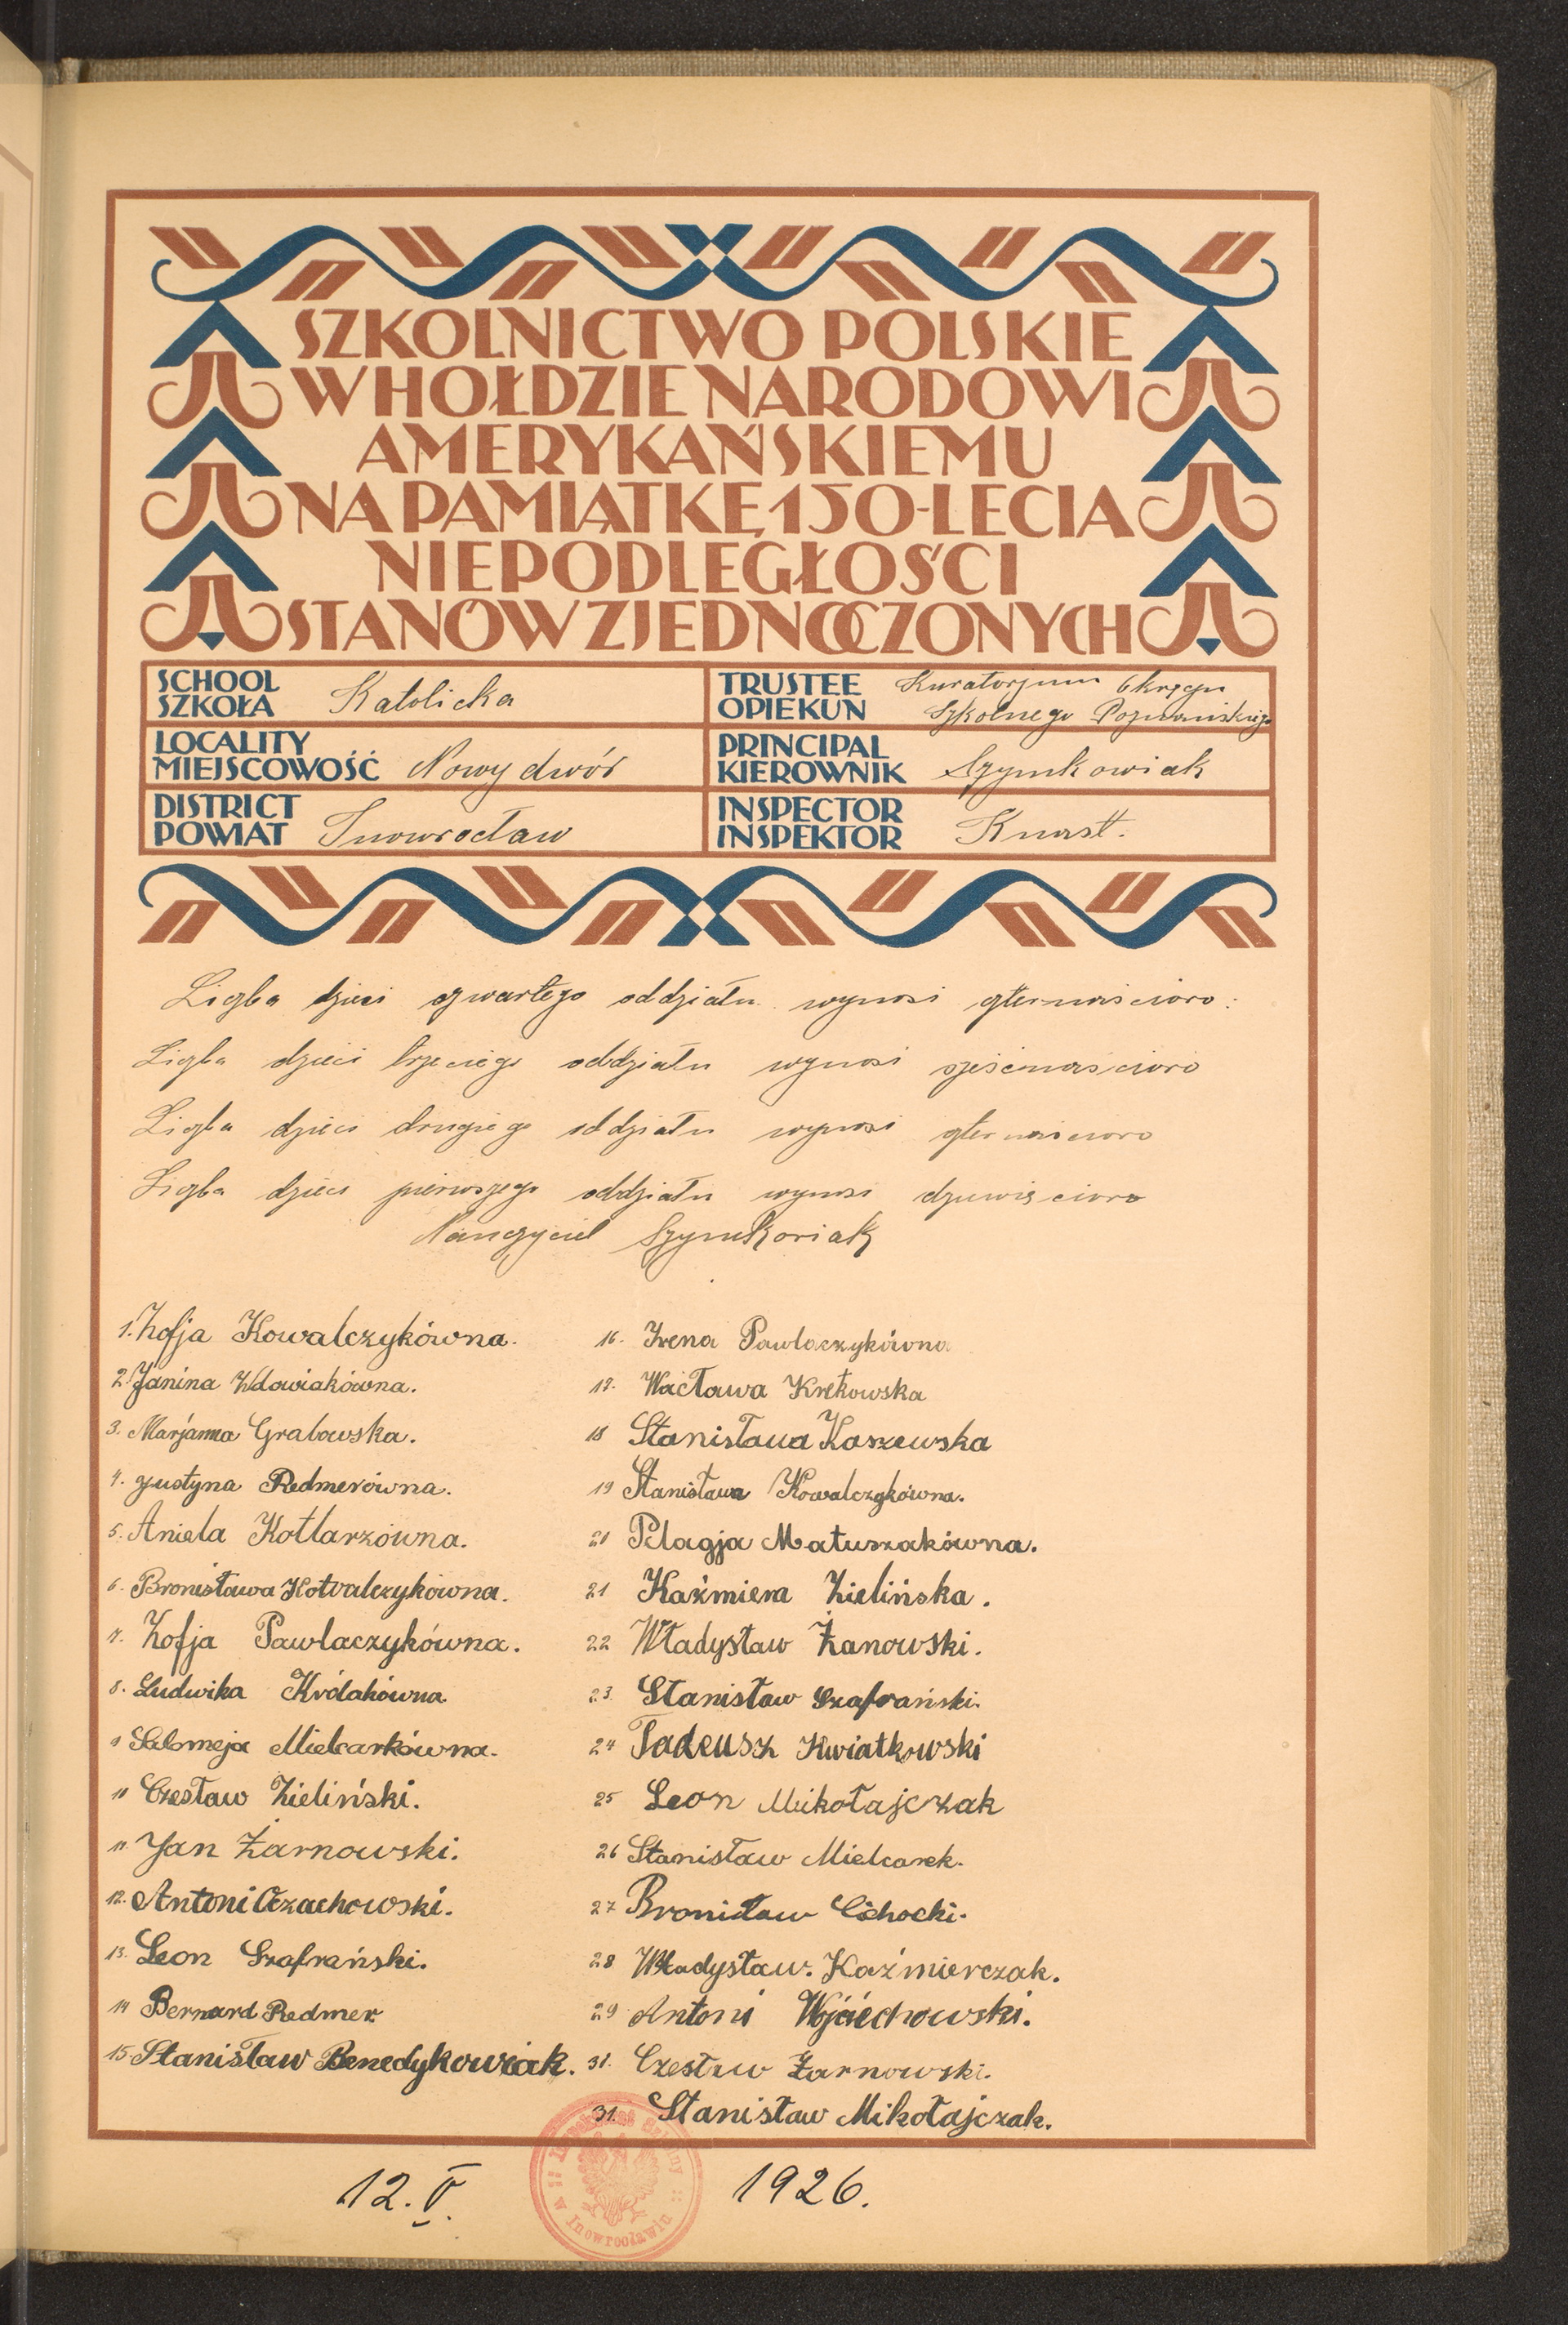 SZKOLNICTWO POLSKIE
W HOŁDZIE NARODOWI
AMERYKAŃSKIEMU
NA PAMIĄTKĘ 150-LECIA
NIEPODLEGŁOŚCI
STANÓW ZJEDNOCZONYCH
SCHOOL
SZKOŁA Katolicka
TRUSTEE Kuratorjum Okręgu
OPIEKUN Szkolnego Poznańskiego
LOCALITY
MIEJSCOWOŚĆ Nowy dwór
PRINCIPAL
KIEROWNIK Szymkowiak
DISTRICT
POWIAT Inowrocław
INSPECTOR
INSPEKTOR Knast.
Liczba dzieci czwartego oddziału wynosi czternaścioro:
Liczba dzieci trzeciego oddziału wynosi sześcnaścioro
Liczba dzieci drugiego oddziału wynosi czternaścioro
Liczba dzieci pierwszego oddziału wynosi dziewięcioro
Nauczyciel Szymkowiak
1. Zofja Kowalczykówna.
2. Janina Wdowiakówna.
3. Marjanna Grabowska.
4. Justyna Redmerówna.
5. Aniela Kotlarzówna.
6. Bronisława Kowalczykówna.
7. Zofja Pawlaczykówna.
8. Ludwika Królakówna
9 Salomeja Mielcarkówna.
10 Czesław Zieliński.
11 Jan Żarnowski.
12. Antoni Czachowski.
13. Leon Szafrański.
14 Bernard Redmer.
15. Stanisław Benedykowiak.
16. Irena Pawlaczykówna
17. Wacława Krekowska
18 Stanisława Kaszewska
19 Stanisława Kowalczykówna.
20 Pelagja Matuszakówna.
21 Kaźmiera Zielińska.
22 Władysław Żanowski.
23. Stanisław Szafrański.
24 Tadeusz Kwiatkowski
25 Leon Mikołajczak
26 Stanisław Mielcarek.
27 Bronisław Cichocki.
28 Władysław. Kaźmierczak.
29 Antoni Wojciechowski.
31. Czesław Żarnowski.
31. Stanisław Mikołajczak.
Inspektor Szkolny
w Inowrocławiu
12. V. 1926.